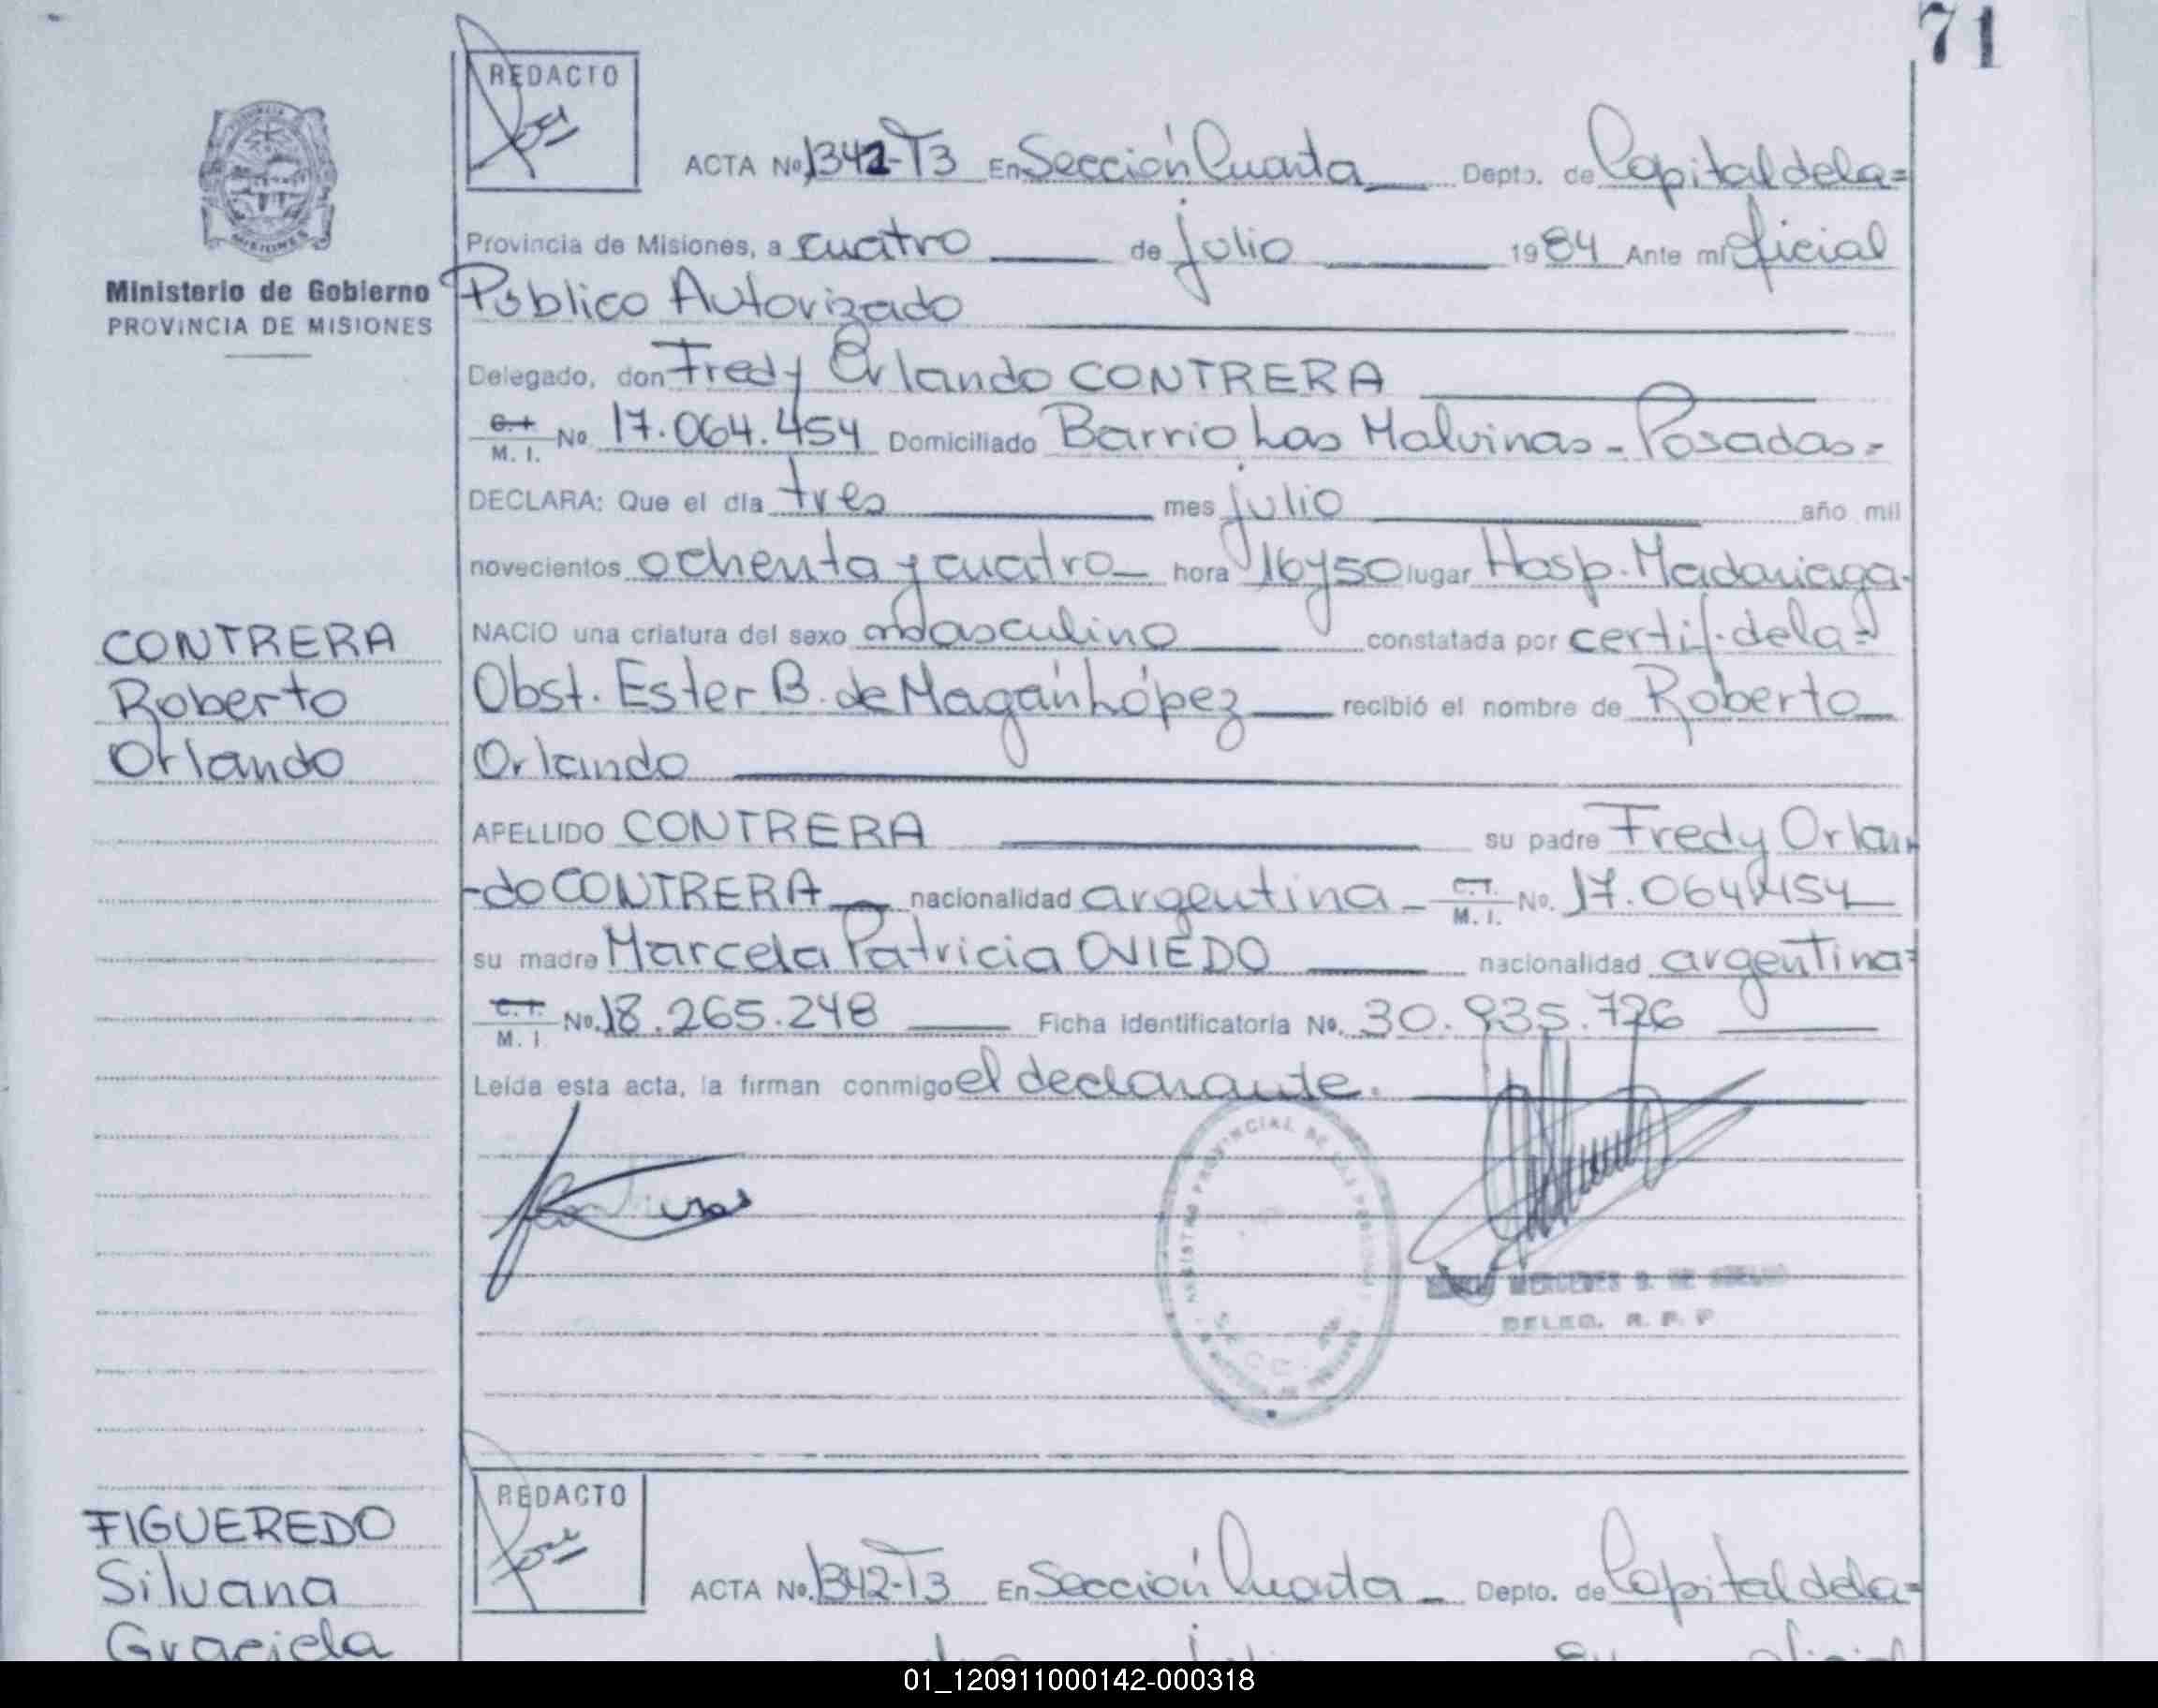 71
REDACTO
ACTA Nº 1342-T3 En Sección Cuarta Depto. de Capital de la=
Provincia de Misiones, a cuatro de julio 1984 Ante mí Oficial
Ministerio de Gobierno
PROVINCIA DE MISIONES
Público Autorizado
Delegado, don Fredy Orlando CONTRERA
C.I. M. I. Nº 17.064.454 Domiciliado Barrio Las Malvinas - Posadas=
DECLARA: Que el día tres mes julio año mil
novecientos ochenta y cuatro hora 16y50 lugar Hosp. Madariaga.
NACIO una criatura del sexo masculino constatada por certif. de la=
CONTRERA
Roberto
Orlando
Obst. Ester B. de Magán López recibió el nombre de Roberto
Orlando
APELLIDO CONTRERA su padre Fredy Orlan
-do CONTRERA nacionalidad argentina - C.I. M. I. Nº. 17.064.454
su madre Marcela Patricia OVIEDO nacionalidad argentina=
C.I. M. I Nº. 18.265.248 Ficha identificatoria Nº. 30.935.726
Leída esta acta, la firman conmigo el declarante.
REGISTRO PROVINCIAL DE LAS PERSONAS
MERCEDES
DELEG. R. P. P
REDACTO
FIGUEREDO
Silvana
Graciela
ACTA Nº. 1342-T3 En Sección Cuarta - Depto. de Capital de la=
01_120911000142-000318